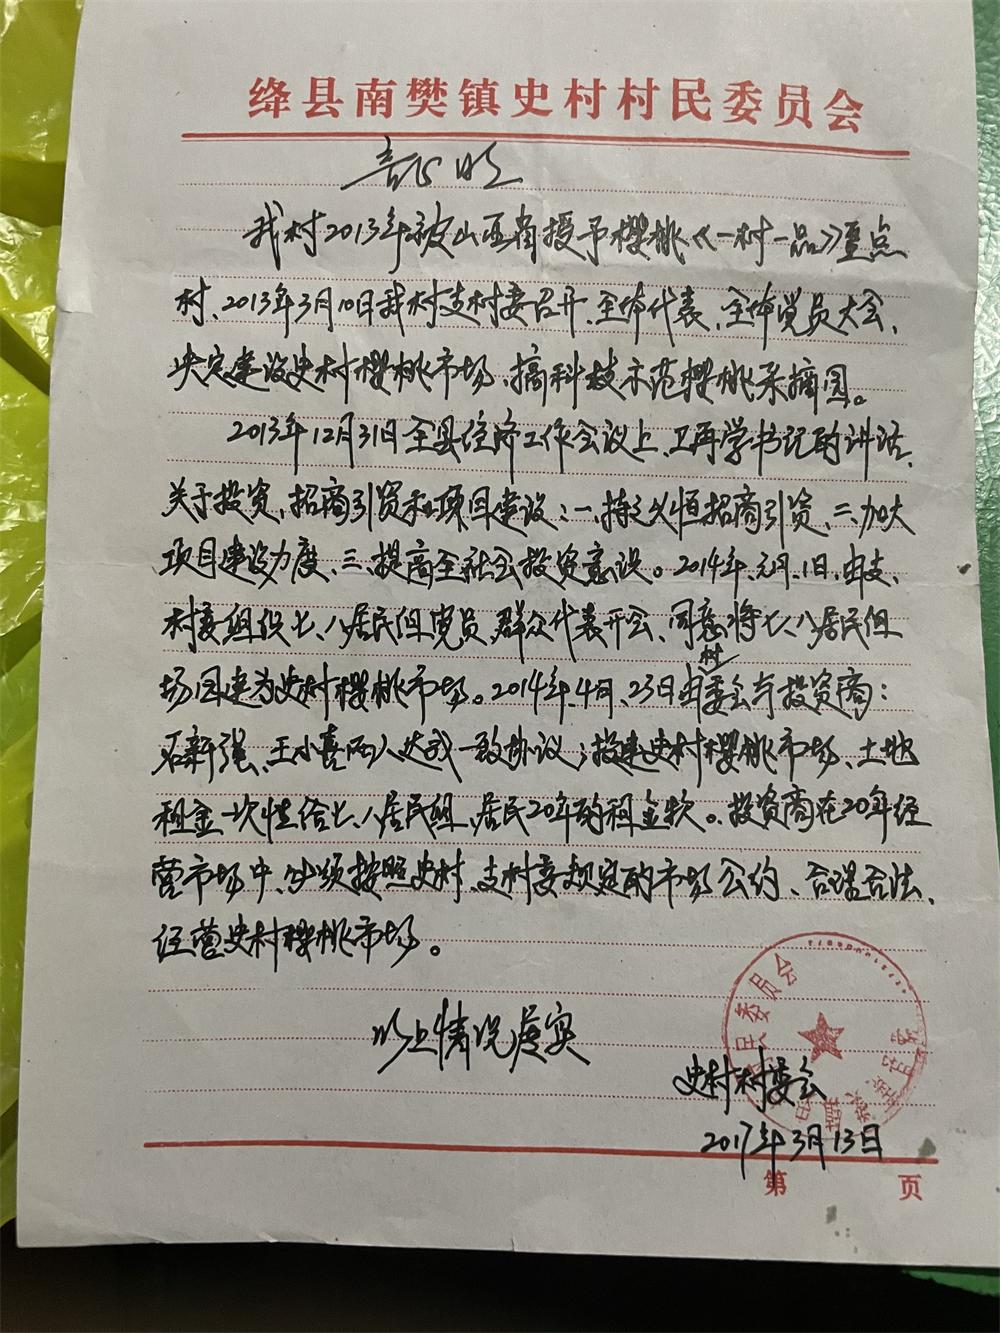 绛县南樊镇史村村民委员会
证明
我村2013年被山西省授予樱桃《一村一品》重点
村、2013年3月10日我村支村委召开、全体代表、全体党员大会、
决定建设史村樱桃市场、搞科技示范樱桃采摘园。
2013年12月31日全县经济工作会议上、卫再学书记的讲话、
关于投资、招商引资和项目建设:一、持之以恒招商引资、二、加大
项目建设力度、三、提高全社会投资意识。2014年、元月、1日、由支、
村委组织七、八居民组党员、群众代表开会、同意将七、八居民组
场园建为史村樱桃市场。2014年、4月、23日由村委会与投资商:
石新强、王小喜两人达成一致协议;投建史村樱桃市场、土地
租金一次性给七、八居民组、居民20年的租金款。投资商在20年经
营市场中、必须按照史村、支村委规定的市场公约、合理合法、
经营史村樱桃市场。
以上情况属实
史村村委会
2017年3月13日
第 页
民委员会